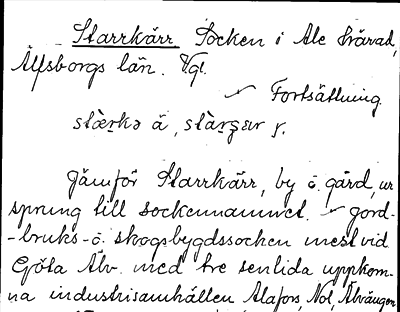 Starrkärr Socken i Ale härad,
Älfsborgs län. Vgl.
Fortsättning
stàrkə ä, stàrʂer ʃ.
Jämför Starrkärr, by o. gård, ur
sprung till sockennamnet. jord-
-bruks- o. skogsbygdssocken mest vid
Göta Älv med tre senlida uppkom-
na industrisamhällen Alafors, Nol, Älvängen